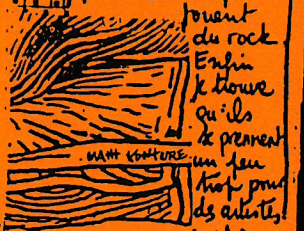 jouent
du rock
Enfin
je trouve
qu'ils
se prennent
un peu
trop pour
ds artistes.
MATT KONTURE